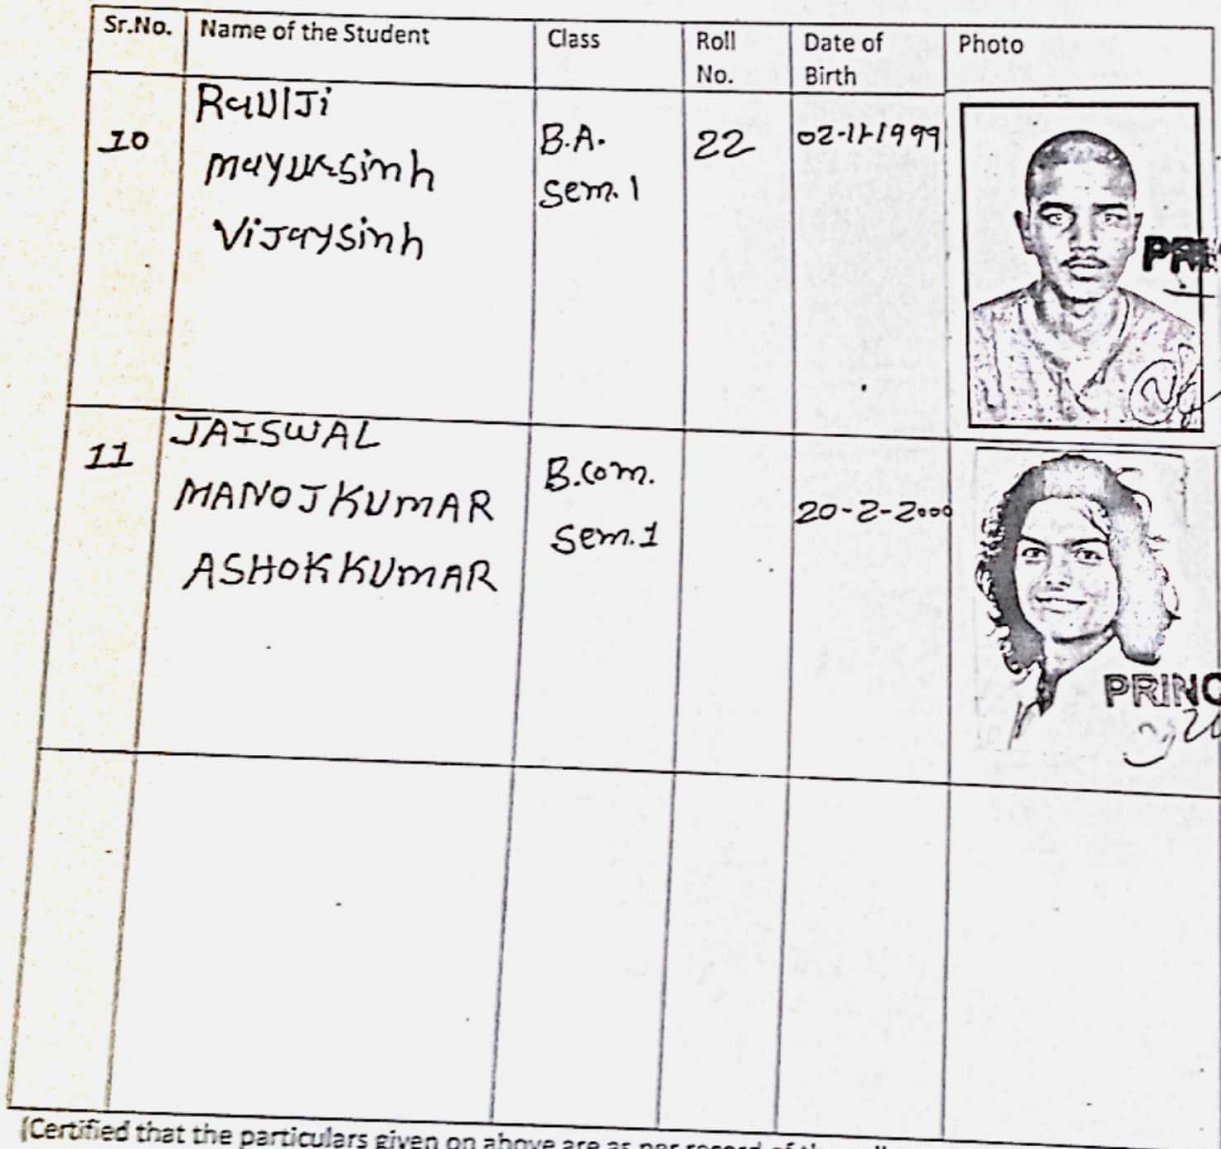 Sr.No. Name of the Student Class Roll No. Date of Birth Photo
10 RaulJi mayursinh Vijaysinh B.A. sem.1 22 02-11-1999
11 JAISWAL MANOJKUMAR ASHOKKUMAR B.com. sem.1 20-2-2000
PRINC
(Certified that the particulars given on above are as per record of the